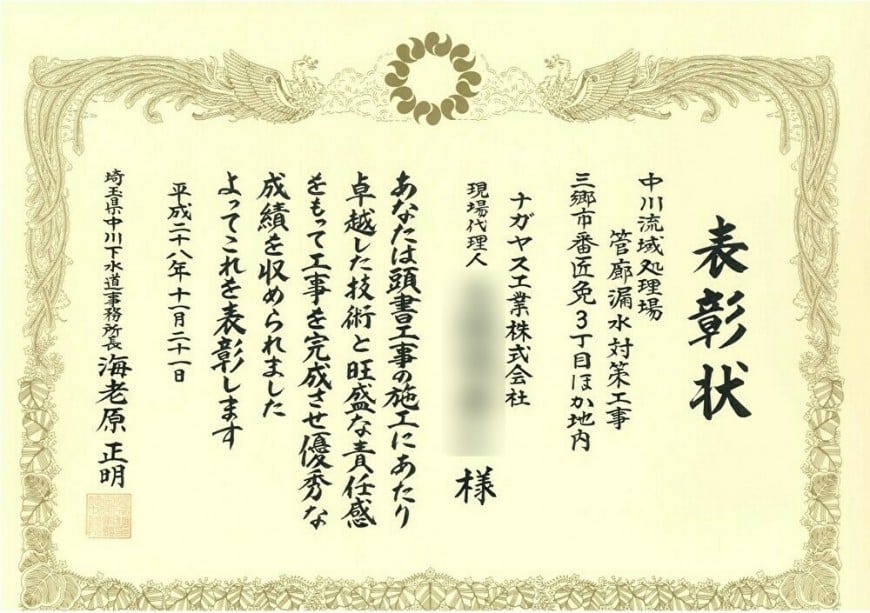 表彰状
中川流域処理場
管廊漏水対策工事
三郷市番匠免3丁目ほか地内
ナガヤス工業株式会社
現場代理人
様
あなたは頭書工事の施工にあたり
卓越した技術と旺盛な責任感
をもって工事を完成させ優秀な
成績を収められました
よってこれを表彰します
平成二十八年十一月二十一日
埼玉県中川下水道事務所長 海老原正明